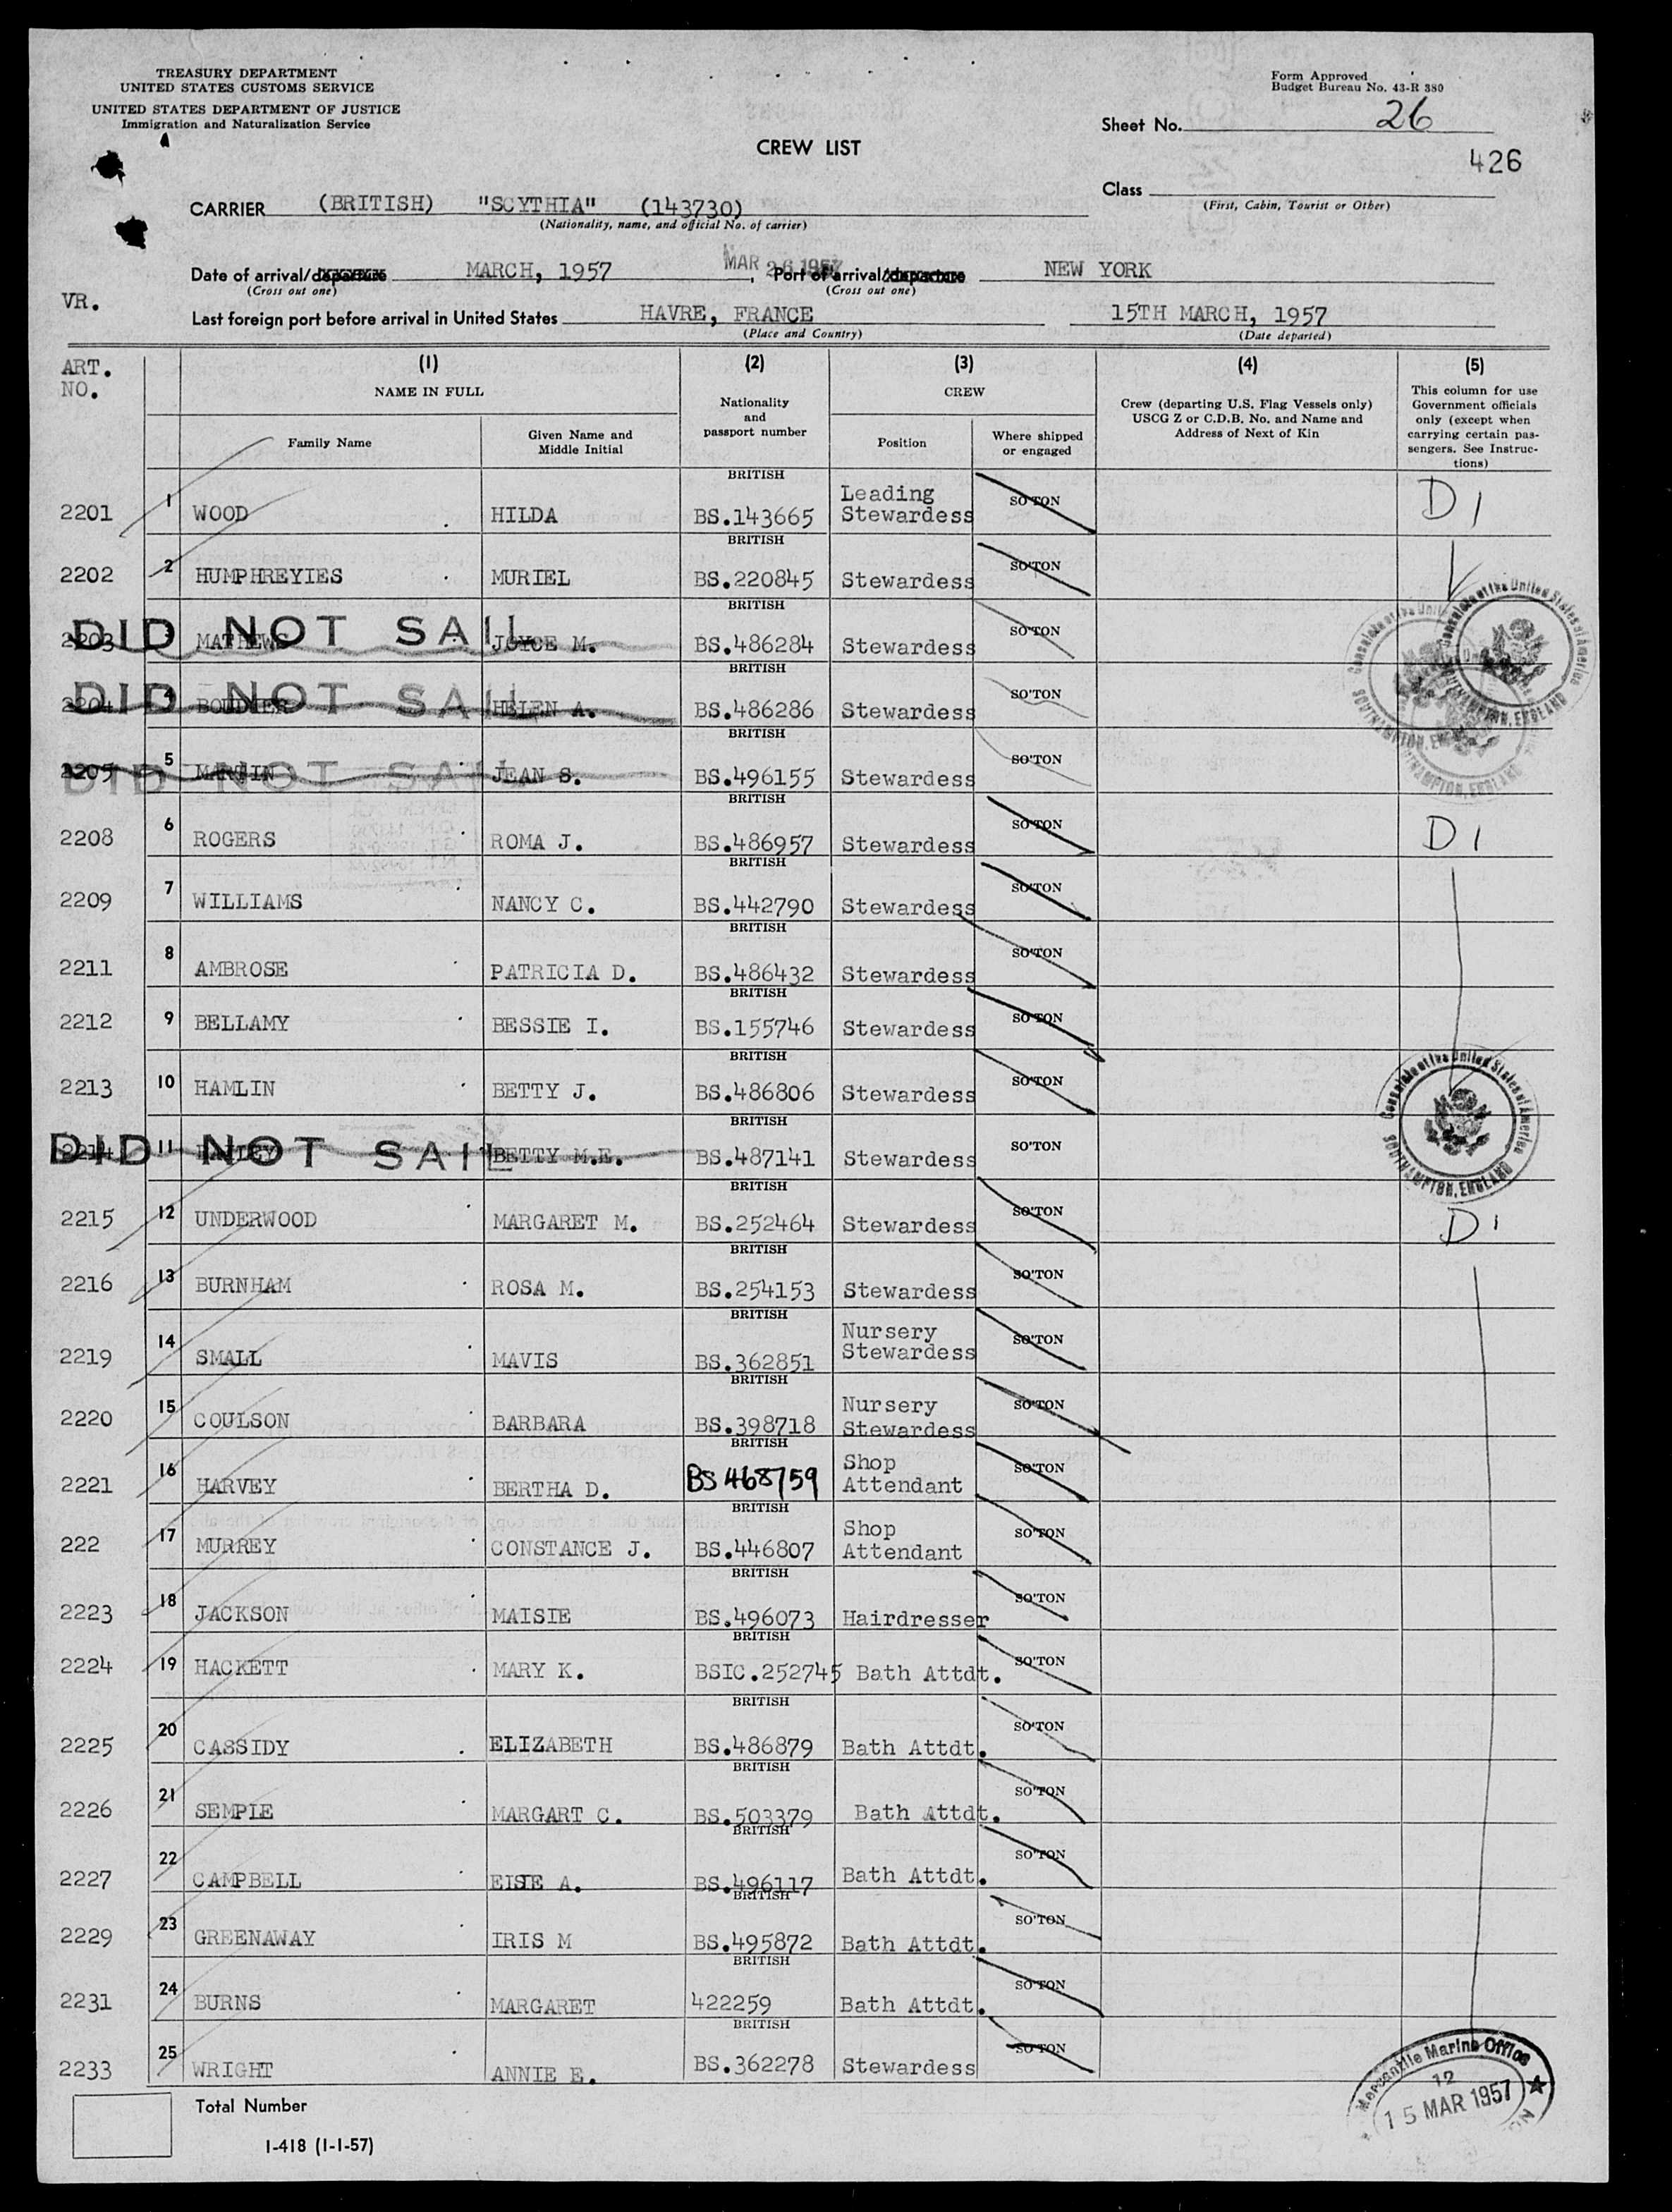 TREASURY DEPARTMENT
UNITED STATES CUSTOMS SERVICE
UNITED STATES DEPARTMENT OF JUSTICE
Immigration and Naturalization Service
Form Approved
Budget Bureau No. 43-R 380
Sheet No. 26
CREW LIST
426
Class
(First, Cabin, Tourist or Other)
CARRIER (BRITISH) "SCYTHIA" (143730)
(Nationality, name, and official No. of carrier)
Date of arrival/departure MARCH, 1957 MAR 26 1957, Port of arrival/departure NEW YORK
(Cross out one) (Cross out one)
VR.
Last foreign port before arrival in United States HAVRE, FRANCE 15TH MARCH, 1957
(Place and Country) (Date departed)
ART. NO.
(1) (2) (3) (4) (5)
NAME IN FULL
Family Name
Given Name and Middle Initial
Nationality and passport number
CREW
Position
Where shipped or engaged
Crew (departing U.S. Flag Vessels only)
USCG Z or C.D.B. No. and Name and
Address of Next of Kin
This column for use
Government officials
only (except when
carrying certain pas-
sengers. See Instruc-
tions)
2201 1 WOOD HILDA BRITISH BS.143665 Leading Stewardess SO'TON D1
2202 2 HUMPHREYIES MURIEL BRITISH BS.220845 Stewardess SO'TON
DID NOT SAIL
2203 3 MATHEWS JOYCE M. BRITISH BS.486284 Stewardess SO'TON
DID NOT SAIL
2204 4 HELEN A. BRITISH BS.486286 Stewardess SO'TON
DID NOT SAIL
2205 5 MARTIN JEAN S. BRITISH BS.496155 Stewardess SO'TON
Consulate of the United States of America
SOUTHAMPTON, ENGLAND
2208 6 ROGERS ROMA J. BRITISH BS.486957 Stewardess SO'TON D1
2209 7 WILLIAMS NANCY C. BRITISH BS.442790 Stewardess SO'TON
2211 8 AMBROSE PATRICIA D. BRITISH BS.486432 Stewardess SO'TON
2212 9 BELLAMY BESSIE I. BRITISH BS.155746 Stewardess SO'TON
2213 10 HAMLIN BETTY J. BRITISH BS.486806 Stewardess SO'TON
Consulate of the United States of America
SOUTHAMPTON, ENGLAND
DID NOT SAIL
2214 11 BETTY M.E. BRITISH BS.487141 Stewardess SO'TON
2215 12 UNDERWOOD MARGARET M. BRITISH BS.252464 Stewardess SO'TON D1
2216 13 BURNHAM ROSA M. BRITISH BS.254153 Stewardess SO'TON
2219 14 SMALL MAVIS BRITISH BS.362851 Nursery Stewardess SO'TON
2220 15 COULSON BARBARA BRITISH BS.398718 Nursery Stewardess SO'TON
2221 16 HARVEY BERTHA D. BRITISH BS 468759 Shop Attendant SO'TON
222 17 MURREY CONSTANCE J. BRITISH BS.446807 Shop Attendant SO'TON
2223 18 JACKSON MAISIE BRITISH BS.496073 Hairdresser SO'TON
2224 19 HACKETT MARY K. BRITISH BSIC.252745 Bath Attdt. SO'TON
2225 20 CASSIDY ELIZABETH BRITISH BS.486879 Bath Attdt. SO'TON
2226 21 SEMPLE MARGART C. BRITISH BS.503379 Bath Attdt. SO'TON
2227 22 CAMPBELL ELSE A. BRITISH BS.496117 Bath Attdt. SO'TON
2229 23 GREENAWAY IRIS M BRITISH BS.495872 Bath Attdt. SO'TON
2231 24 BURNS MARGARET BRITISH 422259 Bath Attdt. SO'TON
2233 25 WRIGHT ANNIE E. BRITISH BS.362278 Stewardess SO'TON
Mercantile Marine Office
12
15 MAR 1957
Total Number
I-418 (1-1-57)